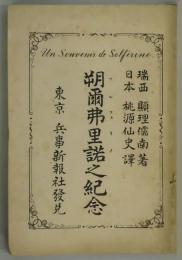 Un Souvenir de Solférino
瑞西 顯理儒南著
日本 桃源仙史譯
朔爾弗里諾之紀念
東京 兵事新報社發兌